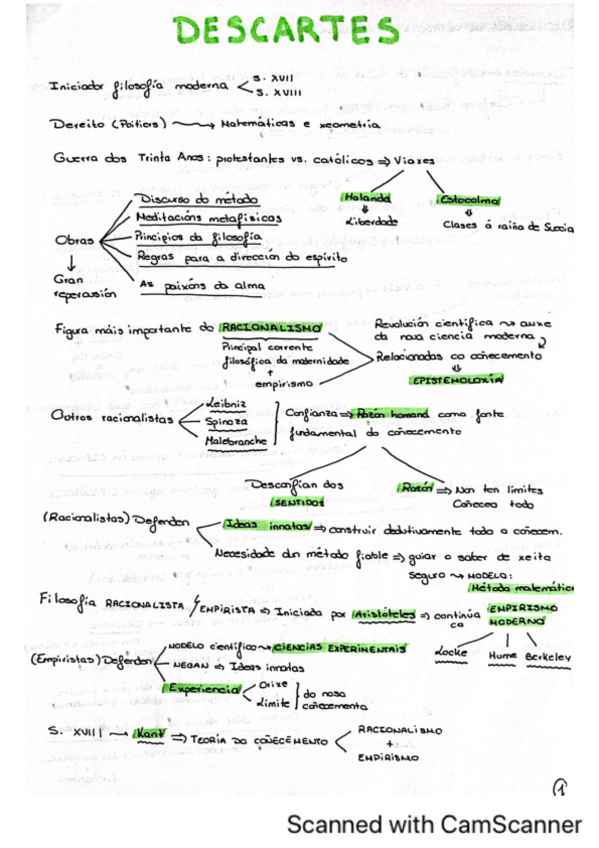 DESCARTES
Iniciador filosofía moderna < S. XVII
S. XVIII
Dereito (Poitiers) → Matemáticas e xeometría
Guerra dos Trinta Anos: protestantes vs. católicos ⇒ Viaxes
Holanda
Estocolmo
Liberdade
Clases á raíña de Suecia
Obras
Discurso do método
Meditacións metafísicas
Principios da filosofía
Regras para a dirección do espírito
As paixóns da alma
Gran
repercusión
Figura máis importante do RACIONALISMO
Principal corrente
filosófica da modernidade
+
empirismo
Revolución científica ⇝ auxe
da nova ciencia moderna
Relacionadas co coñecemento
EPISTEMOLOXÍA
Outros racionalistas
Leibniz
Spinoza
Malebranche
Confianza ⇒ Razón humana como fonte
fundamental do coñecemento
Desconfían dos
SENTIDOS
Razón ⇒ Non ten límites
Coñecea todo
(Racionalistas) Defenden
Ideas innatas ⇒ construír dedutivamente todo o coñecem.
Necesidade dun método fiable ⇒ guiar o saber de xeito
seguro ⇝ MODELO:
Método matemático
Filosofía RACIONALISTA / EMPIRISTA ⇒ Iniciada por Aristóteles ⇒ continúa
co
EMPIRISMO
MODERNO
Locke Hume Berkeley
(Empiristas) Defenden
MODELO científico ⇝ CIENCIAS EXPERIMENTAIS
NEGAN ⇒ Ideas innatas
Experiencia
Orixe
Límite
do noso
coñecemento
S. XVIII → Kant ⇒ TEORÍA DO COÑECEMENTO
RACIONALISMO
+
EMPIRISMO
1
Scanned with CamScanner